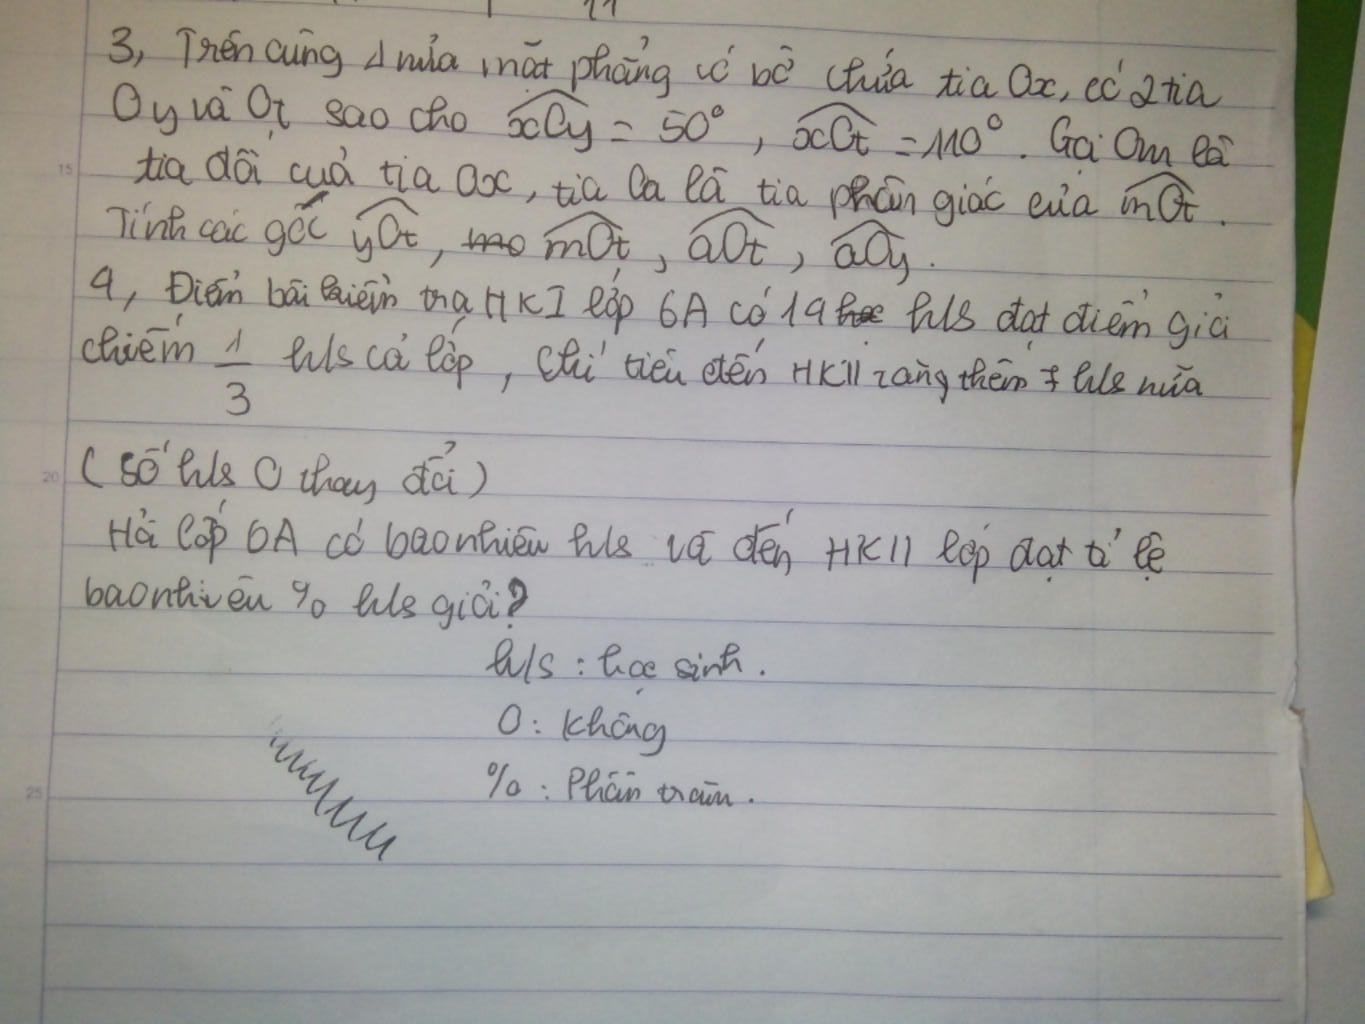 3, Trên cùng 1 nửa mặt phẳng có bờ chứa tia Ox, có 2 tia
Oy và Ot sao cho xOy = 50°, xOt = 110°. Gọi Om là
15
tia đối cuả tia Ox, tia Oa là tia phân giác của mOt.
Tính các góc yOt, mOt, aOt, aOy.
4, Điểm bài kiểm tra HKI lớp 6A có 14 h/s đạt điểm giỏi
chiếm 1/3 h/s cả lớp, chỉ tiêu đến HKII tăng thêm 7 h/s nữa
20
(số h/s 0 thay đổi)
Hỏi lớp 6A có bao nhiêu h/s và đến HKII lớp đạt tỉ lệ
bao nhiêu % h/s giỏi?
h/s : học sinh.
0 : Không
25
% : Phần trăm.